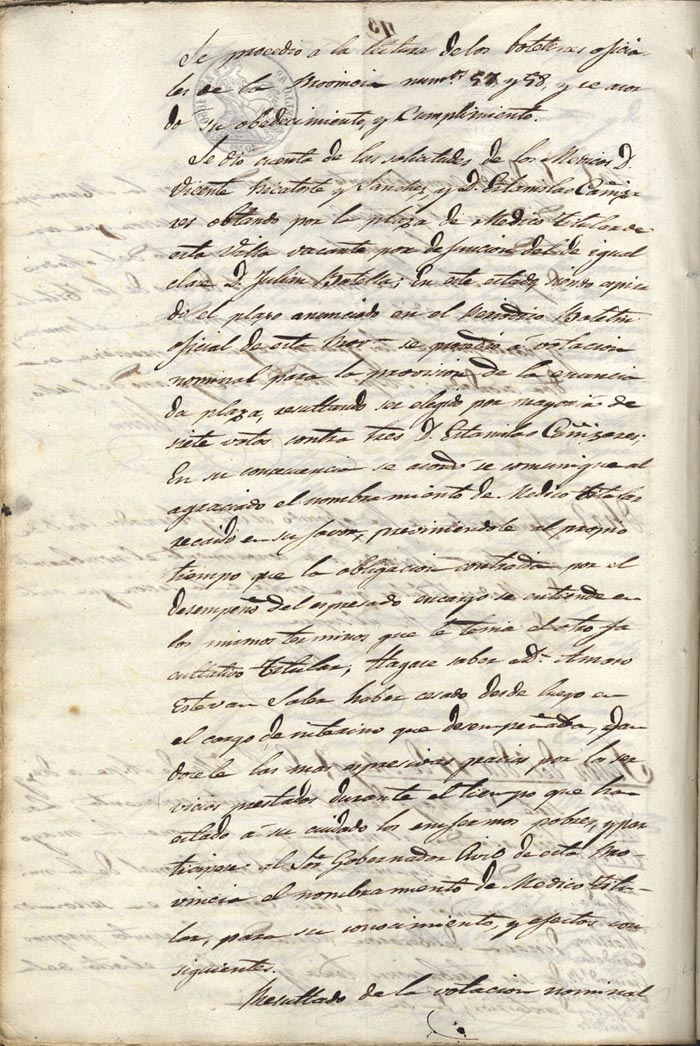 Se procedio a la lectura de los boletines oficia
les de la Provincia num.s 57 y 58, y se acor
dó su obedecimiento, y cumplimiento.
Se dio cuenta de las solicitudes de los Medicos D.
Vicente y Sanchez, y D. Estanislao Cañiza
res obtando por la plaza de Medico titular de
esta Villa vacante por defuncion del de igual
clase D. Julian Botella; En este estado, siendo espira
do el plazo anunciado en el Periodico Boletin
oficial de esta Prov.a se procedio á votacion
nominal para la provision de la enuncia
da plaza, resultando ser elegido por mayoria de
siete votos contra tres D. Estanislao Cañizares;
En su consecuencia se acordo se comunique al
agraciado el nombramiento de Medico titular
recaido en su favor, previniendole al propio
tiempo que la obligacion contraida por el
desempeño del espresado encargo se entiende en
los mismos terminos que la tenia el otro fa
cultativo titular; Hagase saber a D. Amaro
Estevan Saber haber cesado desde luego en
el cargo de interino que desempeñaba, dan
dosele las mas espresivas gracias por los ser
vicios prestados durante el tiempo que han
estado á su cuidado los enfermos pobres, y par
ticipese al Sor. Gobernador Civil de esta Pro
vincia el nombramiento de Medico titu-
lar, para su conocimiento, y efectos con
siguientes.
Resultado de la votacion nominal